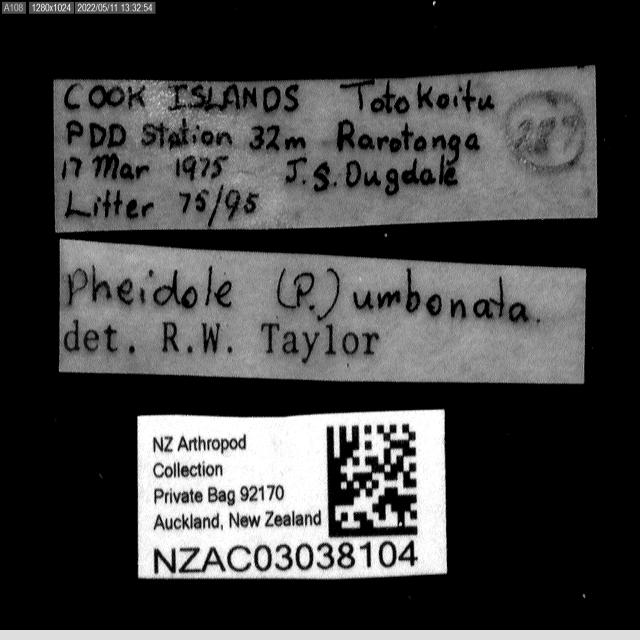 A108 1280x1024 2022/05/11 13:32:54
COOK ISLANDS Totokoitu
PDD Station 32m Rarotonga
17 Mar 1975 J.S. Dugdale
Litter 75/95
Pheidole (P.) umbonata.
det. R.W. Taylor
NZ Arthropod
Collection
Private Bag 92170
Auckland, New Zealand
NZAC03038104